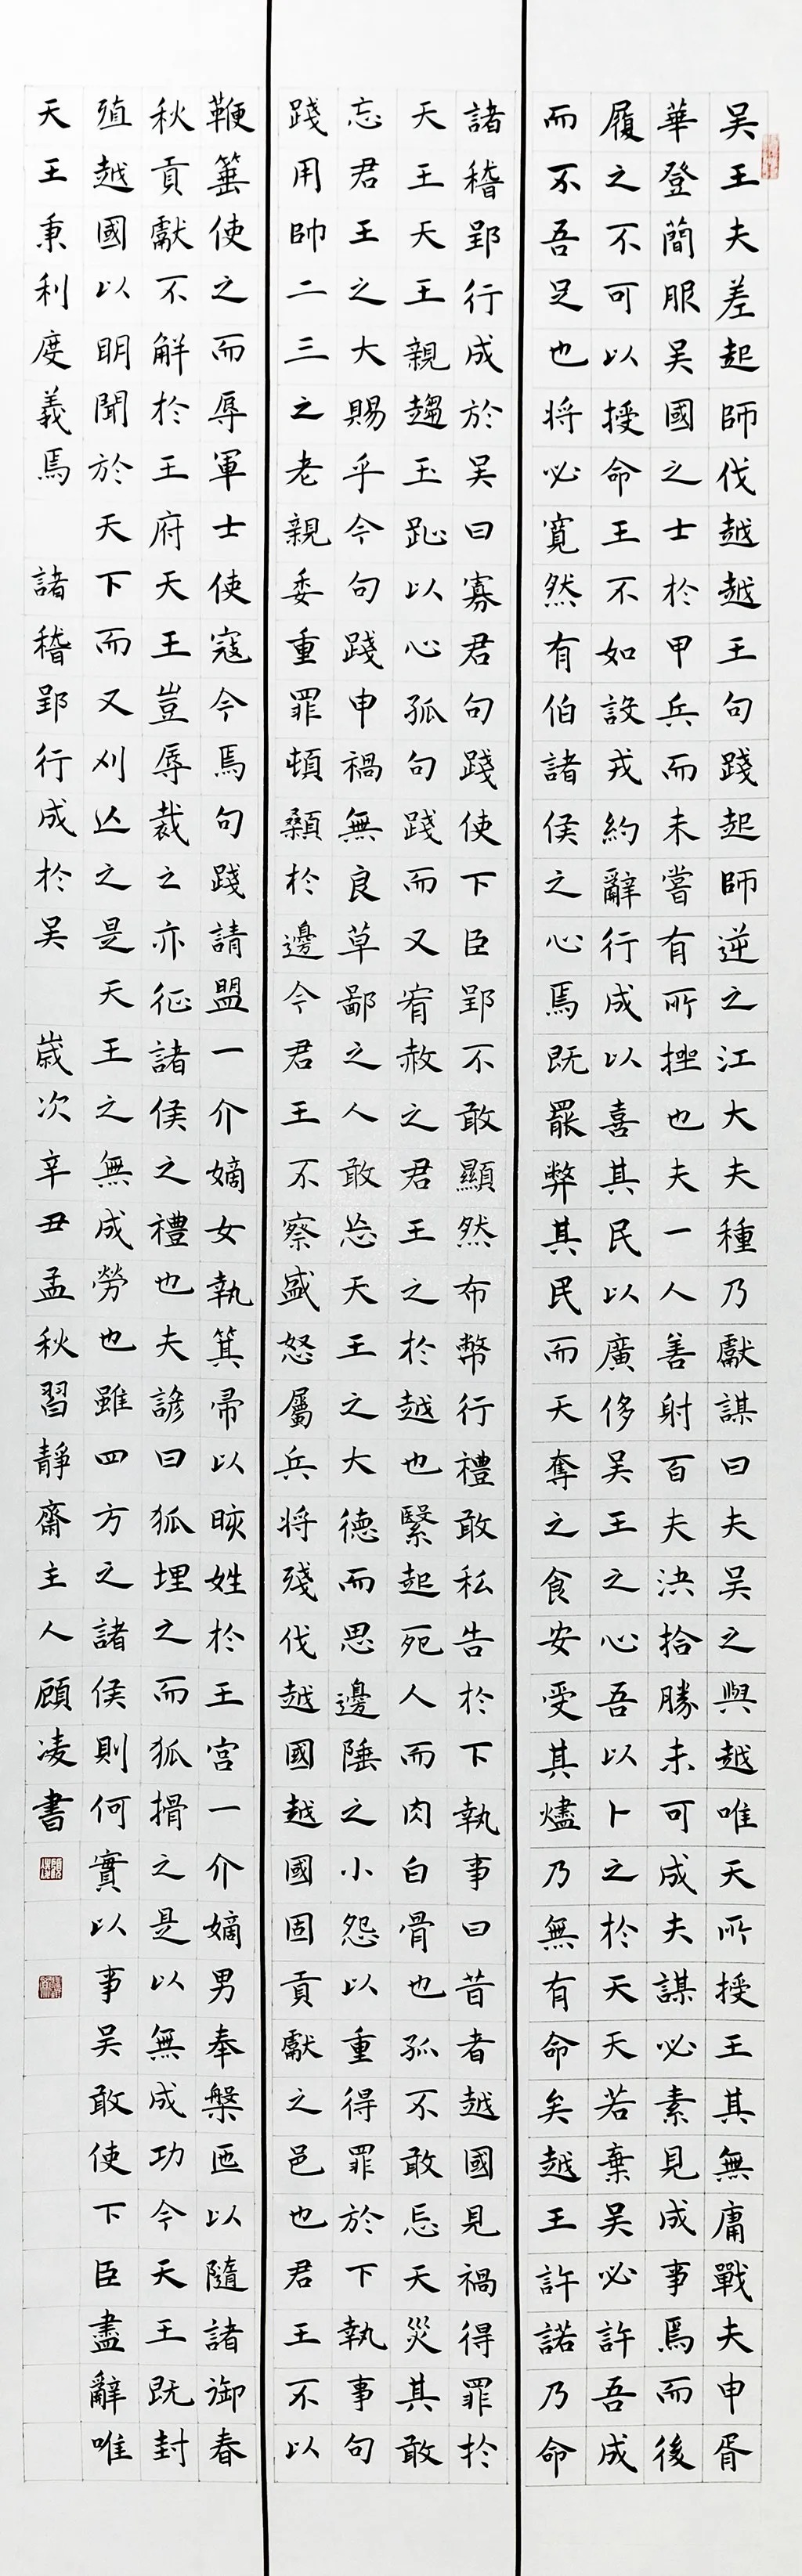 吴王夫差起師伐越越王句踐起師逆之江大夫種乃獻謀曰夫吴之與越唯天所授王其無庸戰夫申胥
華登簡服吴國之士於甲兵而未嘗有所挫也夫一人善射百夫決拾勝未可成夫謀必素見成事焉而後
履之不可以授命王不如設戎約辭行成以喜其民以廣侈吴王之心吾以卜之於天天若棄吴必許吾成
而不吾足也将必寬然有伯諸侯之心焉既罷弊其民而天奪之食安受其燼乃無有命矣越王許諾乃命
諸稽郢行成於吴曰寡君句踐使下臣郢不敢顯然布幣行禮敢私告於下執事曰昔者越國見禍得罪於
天王天王親趨玉趾以心孤句踐而又宥赦之君王之於越也緊起死人而肉白骨也孤不敢忘天災其敢
忘君王之大賜乎今句踐申禍無良草鄙之人敢忘天王之大德而思邊陲之小怨以重得罪於下執事句
踐用帥二三之老親委重罪頓顙於邊今君王不察盛怒屬兵将殘伐越國越國固貢獻之邑也君王不以
鞭箠使之而辱軍士使寇令焉句踐請盟一介嫡女執箕帚以晐姓於王宫一介嫡男奉槃匜以隨諸御春
秋貢獻不解於王府天王豈辱裁之亦征諸侯之禮也夫諺曰狐埋之而狐搰之是以無成功今天王既封
殖越國以明聞於天下而又刈亾之是天王之無成勞也雖四方之諸侯則何實以事吴敢使下臣盡辭唯
天王秉利度義焉 諸稽郢行成於吴 歲次辛丑孟秋習靜齋主人顧凌書